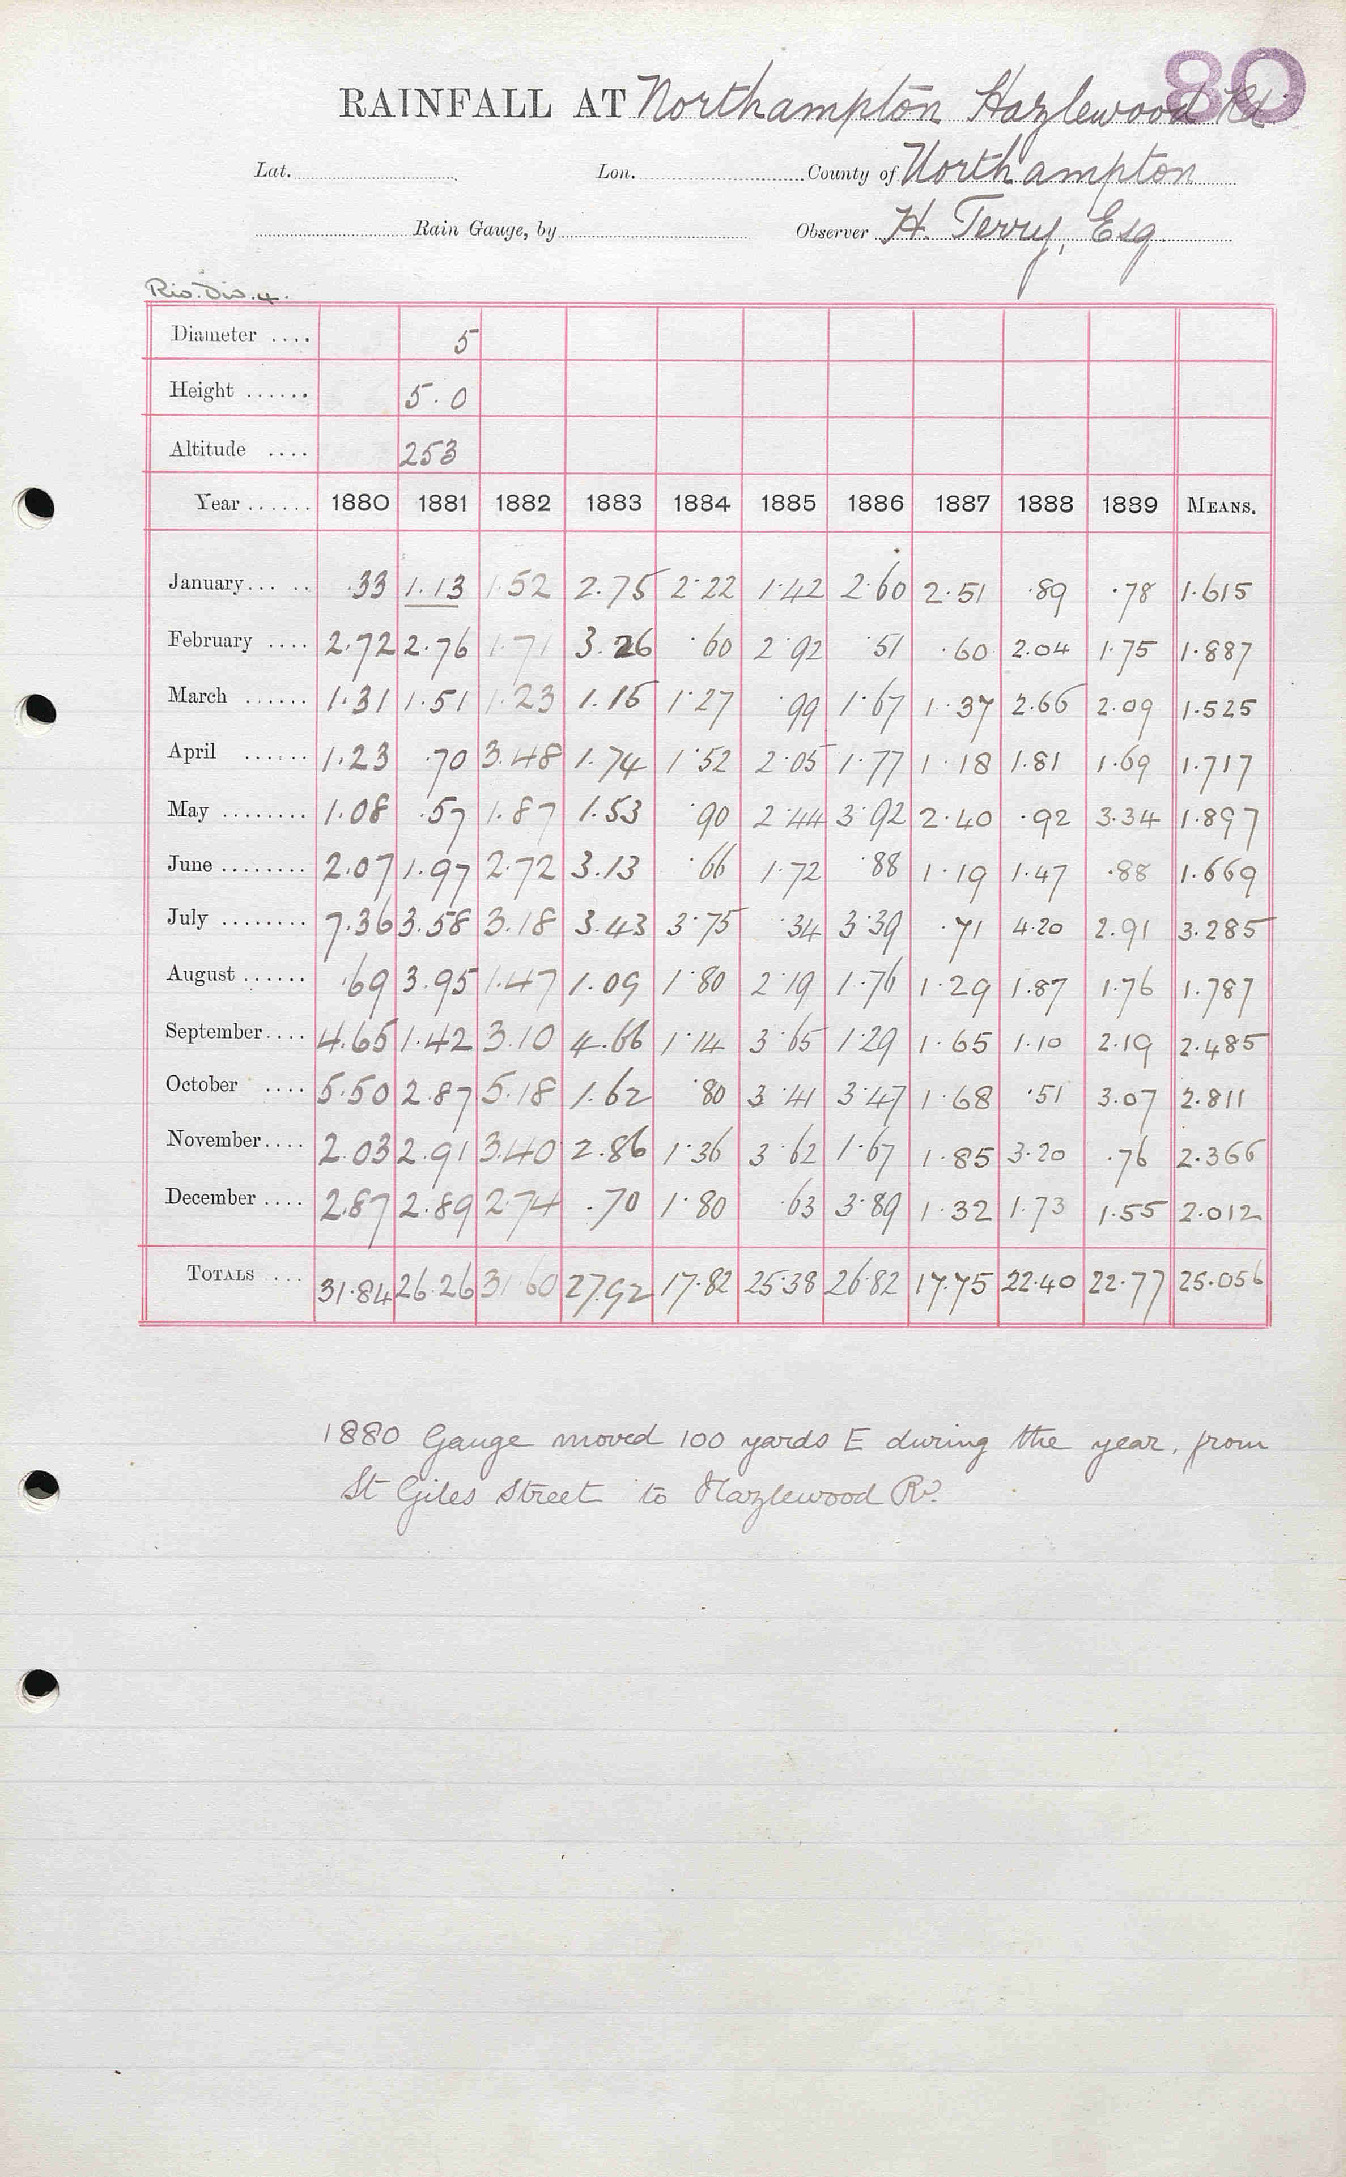 80
RAINFALL AT Northampton Hazlewood Rd
Lat. Lon. County of Northampton
Rain Gauge, by Observer H. Terry, Esq
Riv. Div. 4.
Diameter .... 5
Height ...... 5.0
Altitude .... 253
Year ...... 1880 1881 1882 1883 1884 1885 1886 1887 1888 1889 MEANS.
January ...... .33 1.13 1.52 2.75 2.22 1.42 2.60 2.51 .89 .78 1.615
February .... 2.72 2.76 1.71 3.26 .60 2.92 .51 .60 2.04 1.75 1.887
March ...... 1.31 1.51 1.23 1.15 1.27 .99 1.67 1.37 2.66 2.09 1.525
April ...... 1.23 .70 3.48 1.74 1.52 2.05 1.77 1.18 1.81 1.69 1.717
May ........ 1.08 .57 1.87 1.53 .90 2.44 3.92 2.40 .92 3.34 1.897
June ........ 2.07 1.97 2.72 3.13 .66 1.72 .88 1.19 1.47 .88 1.669
July ........ 7.36 3.58 3.18 3.43 3.75 .34 3.39 .71 4.20 2.91 3.285
August ...... .69 3.95 1.47 1.09 1.80 2.19 1.76 1.29 1.87 1.76 1.787
September .... 4.65 1.42 3.10 4.66 1.14 3.65 1.29 1.65 1.10 2.19 2.485
October .... 5.50 2.87 5.18 1.62 .80 3.41 3.47 1.68 .51 3.07 2.811
November .... 2.03 2.91 3.40 2.86 1.36 3.62 1.67 1.85 3.20 .76 2.366
December .... 2.87 2.89 2.74 .70 1.80 .63 3.89 1.32 1.73 1.55 2.012
TOTALS ... 31.84 26.26 31.60 27.92 17.82 25.38 26.82 17.75 22.40 22.77 25.056
1880 Gauge moved 100 yards E during the year, from
St Giles Street to Hazlewood Rd.